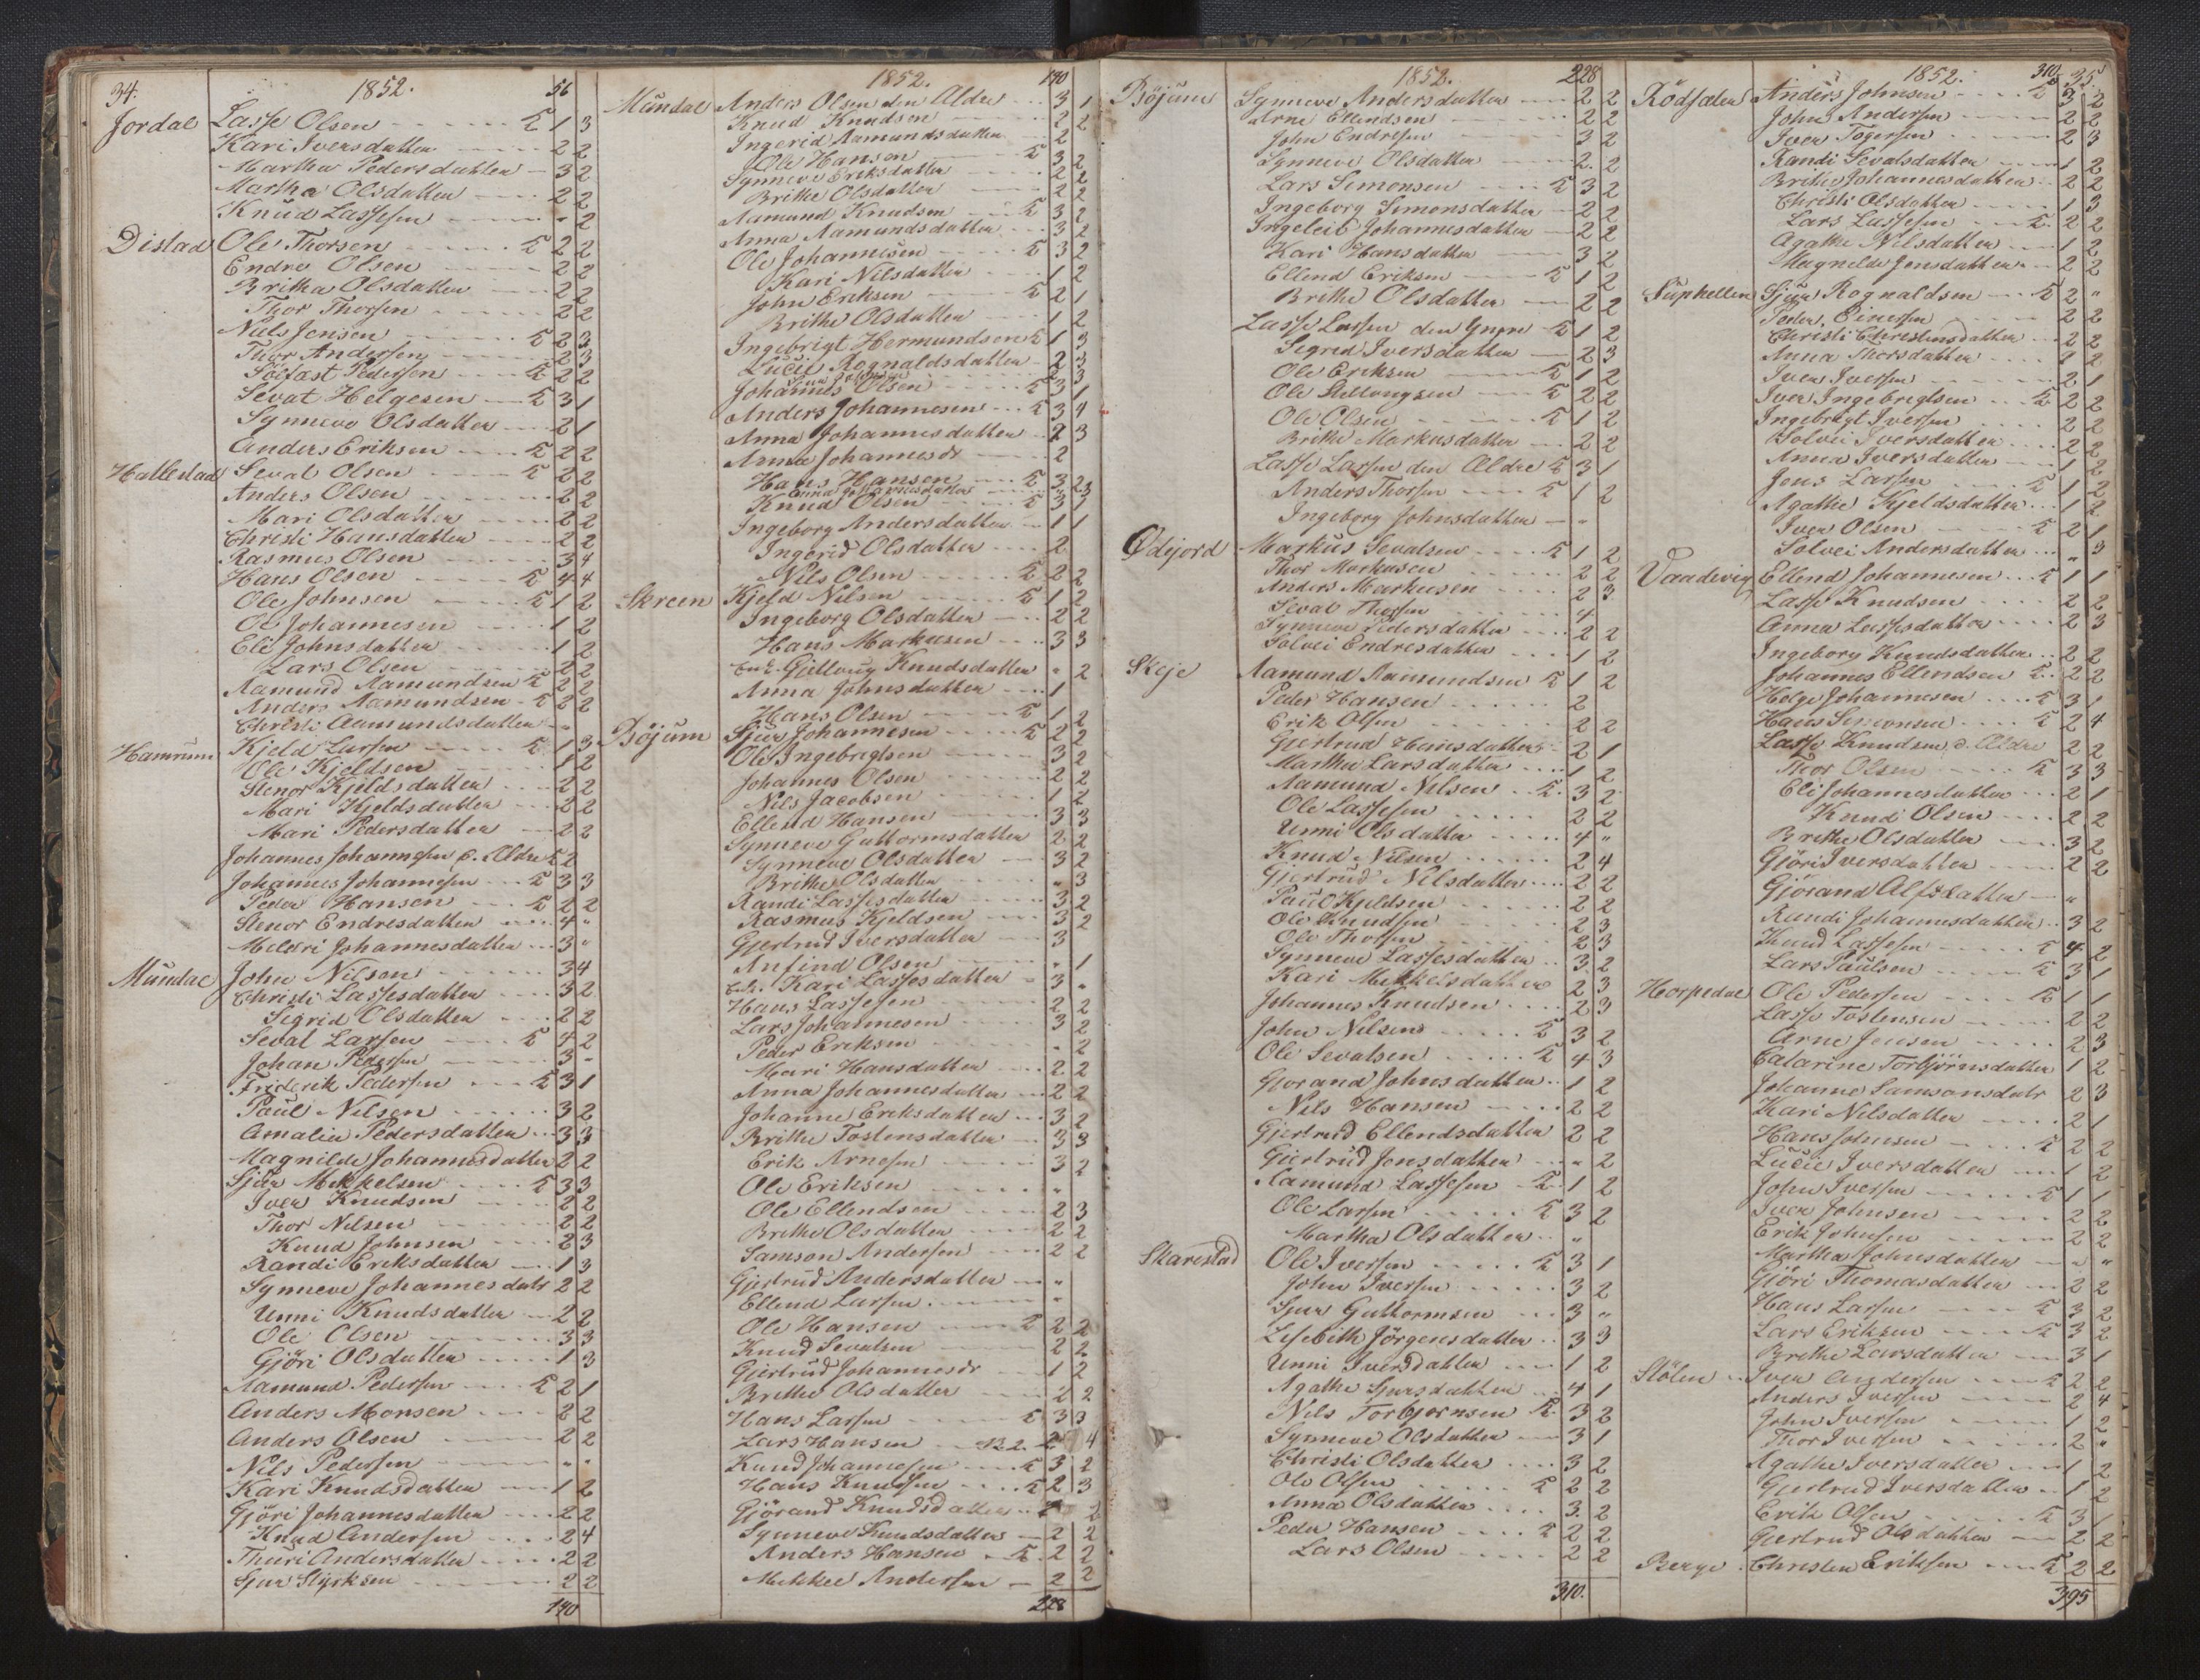 34. 1852. 56
Jordal Lasse Olsen K 1 3
Kari Iversdatter 2 2
Martha Pedersdatter 3 2
Martha Olsdatter 2 2
Knud Lassesen " 2
Distad Ole Thorsen K 2 2
Endre Olsen 2 2
Britha Olsdatter 2 2
Thor Thorsen 2 2
Niels Jensen K 2 3
Thor Andersen 2 3
Solfast Pedersen K 2 2
Sevat Helgesen K 3 1
Synneve Olsdatter 2 1
Anders Eriksen K 2 2
Hallestad Sevat Olsen K 2 2
Anders Olsen 2 2
Mari Olsdatter 2 2
Christi Hansdatter 2 2
Rasmus Olsen 3 4
Hans Olsen K 4 4
Ole Johnsen K 1 2
Ole Johannesen 1 2
Eli Johnsdatter 1 2
Lars Olsen 2 2
Aamund Aamundsen K 2 2
Anders Aamundsen K 2 2
Christi Aamundsdatter "
Hamrum Kjeld Larsen K 1 3
Ole Kjeldsen 1 2
Stenor Kjeldsdatter 2 2
Mari Kjeldsdatter 2 2
Mari Pedersdatter 2 2
Johannes Johannesen d. Ældre K 2
Johannes Johannesen K 3 3
Peder Hansen K 2 2
Stenor Endresdatter 4 "
Meldri Johannesdatter 3 "
Mundal John Nilsen 3 4
Christi Lassesdatter 3 2
Sigrid Olsdatter 2 2
Sevat Larsen K 4 2
Johan Pedersen 3 -
Friderik Pedersen K 3 1
Paul Nilsen 3 2
Amalia Pedersdatter 3 3
Magnilde Johannesdatter 2 2
Sjur Mikkelsen K 3 3
Iver Knudsen 2 2
Thor Nilsen 2 2
Knud Johnsen 2 3
Randi Eriksdatter 1 3
Synneve Johannesdatr 2 2
Unni Knudsdatter 2 2
Ole Olsen 3 3
Gjöri Olsdatter 1 3
Aamund Pedersen K 2 1
Anders Monsen 2 2
Anders Olsen 2 2
Nils Pedersen " "
Kari Knudsdatter 1 2
Gjöri Johannesdatter 2 2
Knud Andersen 2 4
Thuri Andersdatter 2 2
Sjur Styrksen 2 2
140
1852. 140
Mundal Anders Olsen den Ælder 3 1
Knud Knudsen 2 2
Ingerid Aamundsdatter 2
Ole Hansen K 3 2
Synneve Eriksdatter 2 2
Brithe Olsdatter 2 2
Aamund Knudsen K 3 2
Anna Aamundsdatter 3 2
Ole Johannesen K 3 2
Kari Nilsdatter 1 2
John Eriksen K 2 1
Brithe Olsdatter 1 2
Ingebrigt Hermundsen K 1 3
Lucie Rognaldsdatter 2 3
Johannes Olsen K 3 1
Anders Johannesen K 3 4
Anna Johannesdatter 2 3
Anna Johannesdr 2
Hans Hansen K 3 2
Anna Johannesdatter
Knud Olsen K 3 1
Ingeborg Andersdatter 1 1
Ingerid Olsdatter 2
Nils Olsen K 2 2
Skreen Kjeld Nilsen K 1 2
Ingeborg Olsdatter 2 2
Hans Markusen 3 3
Enk. Gjellaug Knudsdatter " 2
Anna Johnsdatter 1
Hans Olsen K 1 2
Böjum Sjur Johannesen K 2 2
Ole Ingebrigtsen 3 2
Johannes Olsen 2 2
Nils Jacobsen 1 2
Ellend Hansen 3 3
Synneve Guttormsdatter 2 2
Synneve Olsdatter 3 2
Brithe Olsdatter " 3
Randi Lassesdatter 3 2
Rasmus Kjeldsen 3 2
Gjertrud Iversdatter 3
Anfind Olsen " 1
Enk. Kari Lassesdatter 3 "
Hans Lassesen 2 2
Lars Johannesen 3 2
Peder Eriksen - 2
Mari Hansdatter 2 2
Anna Johannesdatter 2 2
Johanne Eriksdatter 3 2
Brithe Tostensdatter 3 3
Erik Arnesen 3 2
Ole Eriksen "
Ole Ellendsen 2 3
Brithe Olsdatter 2 2
Samson Andersen 2 2
Gjertrud Andersdatter "
Ellend Larsen "
Ole Hansen K 2 2
Knud Sevatsen 2 2
Gjertrud Johannesdr 1 2
Brithe Olsdatter 2 2
Hans Larsen K 3 3
Lars Hansen 2 4
Knud Johannesen K 3 2
Hans Knudsen K 2 3
Gjörand Knudsdatter 2
Synneve Knudsdatter 2 2
Anders Hansen K 2 2
Mikkel Andersen 2 2
228
1852. 228
Böjum Synneve Andersdatter 2 2
Arne Ellendsen 2 2
John Endresen 3 2
Synneve Olsdatter 2 2
Lars Simonsen K 3 2
Ingeborg Simonsdatter 2 2
Ingeleif Johannesdatter 2 2
Kari Hansdatter 3 2
Ellend Eriksen K 1 2
Brithe Olsdatter 2 2
Lasse Larsen den Yngre K 1 2
Sigrid Iversdatter 2 3
Ole Eriksen K 1 2
Ole Stellougsen K 2 2
Ole Olsen K 1 2
Brithe Markusdatter 2 2
Lasse Larsen den Ældre K 3 1
Anders Thorsen K 1 2
Ingeborg Johnsdatter "
Ødejord Markus Sevatsen K 1 2
Thor Markusen 2 2
Anders Markusen 2 3
Sevat Thorsen 4
Synneve Pedersdatter 2 2
Solvei Endresdatter 1 2
Skeje Aamund Aamundsen K 1 2
Peder Hansen 2
Erik Olsen 2 2
Gjertrud Hansdatter 2 1
Martha Larsdatter 1 2
Aamund Nilsen K 3 2
Ole Lassesen 2 2
Unni Olsdatter 4 "
Knud Nilsen 2 4
Gjertrud Nilsdatter 2 2
Paul Kjeldsen 2 2
Ole Knudsen 2 3
Ole Thorsen 2 3
Synneve Lassesdatter 3 2
Kari Mikkelsdatter 2 3
Johannes Knudsen 2 3
John Nilsen K 3 2
Ole Sevatsen K 4 3
Gjorand Johnsdatter 1 2
Nils Hansen 2 2
Gjertrud Ellendsdatter 2 2
Gjertrud Jonsdatter " 2
Aamund Lassesen K 1 2
Ole Larsen K 3 2
Martha Olsdatter "
Skarestad Ole Iversen K 3 1
John Iversen 3 2
Sjur Guttormsen 3 "
Lisebith Jörgensdatter 3 3
Unni Iversdatter 1 2
Agathe Sjursdatter 4 1
Nils Torbjornsen K 3 2
Synneve Olsdatter 3 1
Christi Olsdatter 3 2
Ole Olsen K 2 2
Anna Olsdatter 3 2
Peder Hansen K 2 2
Lars Olsen 2 2
310.
1852. 310 35.
Rödsæter Anders Johnsen K 3 2
John Andersen 2 2
Iver Togersen 2 3
Randi Sevatsdatter 1 2
Brithe Johannesdatter 2 2
Christi Olsdatter 1 3
Lars Lassesen K 2 2
Agathe Nilsdatter 1 2
Magnilde Jensdatter 2 2
Suphellen Sjur Rognaldsen K 2 "
Peder Einersen 2 2
Christi Christensdatter 2 2
Anna Thorsdatter 2 2
Iver Iversen 2 1
Iver Ingebrigtsen K 2 2
Ingebrigt Iversen 2 2
Solvei Iversdatter 2 2
Anna Iversdatter 1 2
Jens Larsen K 1 2
Agathe Kjeldsdatter 1 2
Iver Olsen K 2 1
Solvei Andersdatter " 3
Vaadevig Ellend Johannesen K 1 1
Lasse Knudsen 2 2
Anna Lassesdatter 2 3
Ingeborg Knudsdatter 2 2
Johannes Ellendsen K 2 2
Helge Johannesen K 3 1
Hans Simonsen K 2 4
Lasse Knudsen d. Ældre 2 2
Thor Olsen K 3 3
Eli Johannesdatter 2 1
Knud Olsen 2 2
Brithe Olsdatter 3 2
Gjöri Iversdatter 2 2
Gjörand Alfsdatter "
Randi Johannesdatter 3 2
Knud Lassesen K 4 2
Lars Paulsen K 3 1
Horpedal Ole Pedersen K 1 1
Lasse Tostensen 2 2
Arne Jensen 2 3
Catarine Torbjörnsdatter 1 2
Johanne Samsonsdatr 2 3
Kari Nilsdatter 2 1
Hans Johnsen K 2 2
Lucie Iversdatter 1 2
John Iversen K 1 1
Iver Johnsen 2 2
Erik Johnsen 2 2
Martha Johnsdatter " "
Gjöri Thomasdatter 2 2
Hans Larsen K 3 2
Lars Eriksen K 3 2
Brithe Larsdatter 3 1
Stölen Iver Andersen K 2 2
Anders Iversen 2 4
John Iversen 1 2
Thor Iversen 2 "
Agathe Iversdatter 1 2
Gjertrud Iversdatter 1 2
Erik Olsen K 3 1
Gjertrud Olsdatter 2 2
Berge Christen Eriksen K 2 2
395